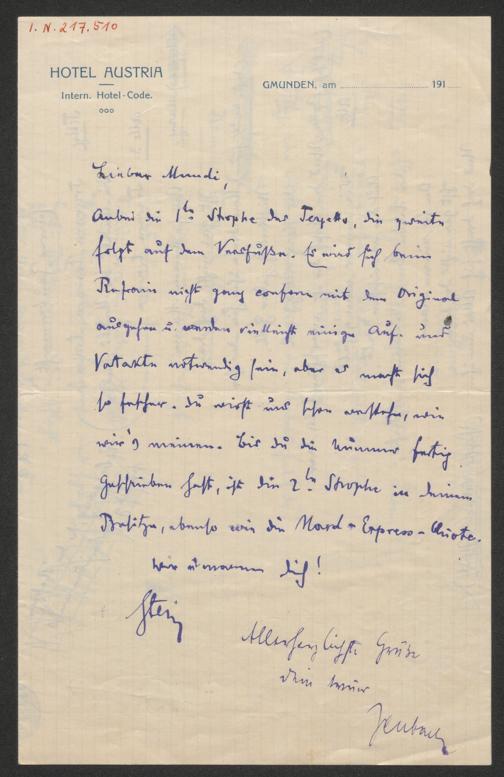 I.N. 217.510
HOTEL AUSTRIA
Intern. Hotel-Code.
GMUNDEN, am 191
Lieber Mundi,
Anbei die 1te Strophe des Terzetts, die zweite
folgt auf dem Versfuße. Es wird sich beim
Refrain nicht ganz conform mit dem Original
ausgehen u. werden vielleicht einige Auf- und
Vortakte notwendig sein, aber es macht sich
so fescher. Du wirst uns schon verstehn, wie
wir's meinen. Bis du die Nummer fertig
geschrieben hast, ist die 2te Strophe in deinem
Besitze, ebenso wie die Nord-Express-Quote.
Wir umarmen dich!
Stein
Allerherzlichste Grüße
dein treuer
Jenbach